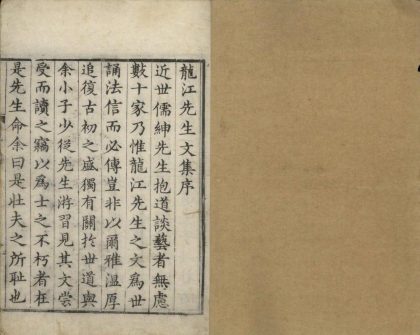 龍江先生文集序
近世儒紳先生抱道談藝者無慮
數十家乃惟龍江先生之文為世
誦法信而必傳豈非以爾雅温厚
追復古初之盛獨有關於世道與
余小子少從先生游習見其文嘗
受而讀之竊以為士之不朽者在
是先生命余曰是壯夫之所恥也